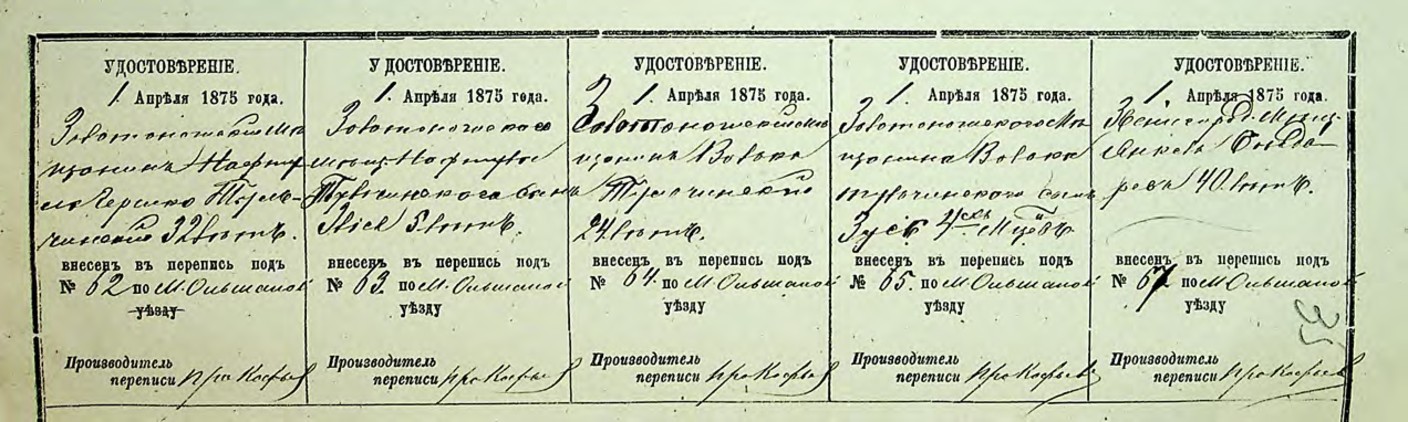 УДОСТОВѢРЕНІЕ.
1. Апрѣля 1875 года.
Золотоношскій мѣ
щанинъ Нафту
ль Гершко Тульчинскій
32 лѣтъ.
внесенъ въ перепись подъ
№ 62 по М. Ольшаной
уѣзду
Производитель
переписи Прокофьев
УДОСТОВѢРЕНІЕ.
1. Апрѣля 1875 года.
Золотоношскаго
мѣщ. Нафтула
Тульчинскаго сынъ
5 лѣтъ.
внесенъ въ перепись подъ
№ 63. по М. Ольшаной
уѣзду
Производитель
переписи Прокофьев
УДОСТОВѢРЕНІЕ.
1. Апрѣля 1875 года.
Золотоношскій мѣ
щанинъ Волько
Тульчинскій
24 лѣтъ.
внесенъ въ перепись подъ
№ 64. по М. Ольшаной
уѣзду
Производитель
переписи Прокофьев
УДОСТОВѢРЕНІЕ.
1. Апрѣля 1875 года.
Золотоношскаго мѣ
щанина Волька
Тульчинскаго сынъ
Зусь 4хъ
внесенъ въ перепись подъ
№ 65. по М. Ольшаной
уѣзду
Производитель
переписи Прокофьев
УДОСТОВѢРЕНІЕ.
1. Апрѣля 1875 года.
Звенигород. мѣщ.
Янкель
40 лѣтъ.
внесенъ въ перепись подъ
№ 67 по М. Ольшаной
уѣзду
Производитель
переписи Прокофьев
35